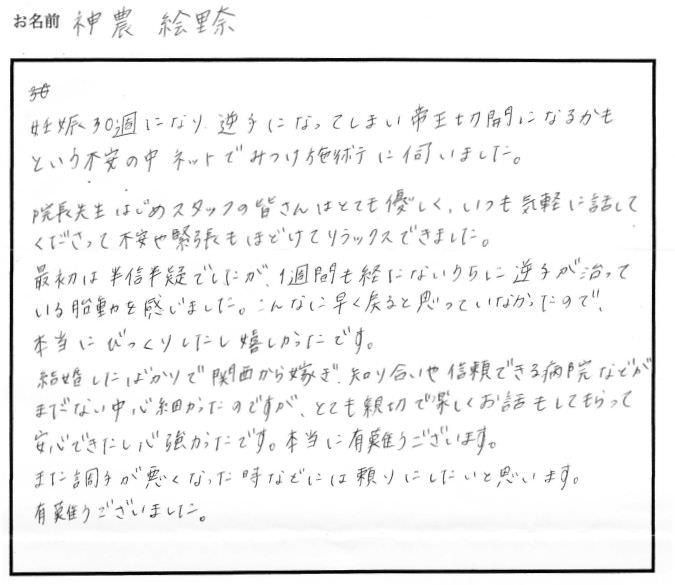 お名前 神農 絵里奈
妊娠30週になり、逆子になってしまい帝王切開になるかも
という不安の中ネットでみつけ施術に伺いました。
院長先生はじめスタッフの皆さんはとても優しく、いつも気軽に話して
くださって不安や緊張もほどけてリラックスできました。
最初は半信半疑でしたが、1週間も経たないうちに逆子が治って
いる胎動を感じました。こんなに早く戻ると思っていなかったので、
本当にびっくりしたし嬉しかったです。
結婚したばかりで関西から嫁ぎ、知り合いや信頼できる病院などが
まだない中心細かったのですが、とても親切で楽しくお話もしてもらって
安心できたし心強かったです。本当に有難うございます。
また調子が悪くなった時などには頼りにしたいと思います。
有難うございました。